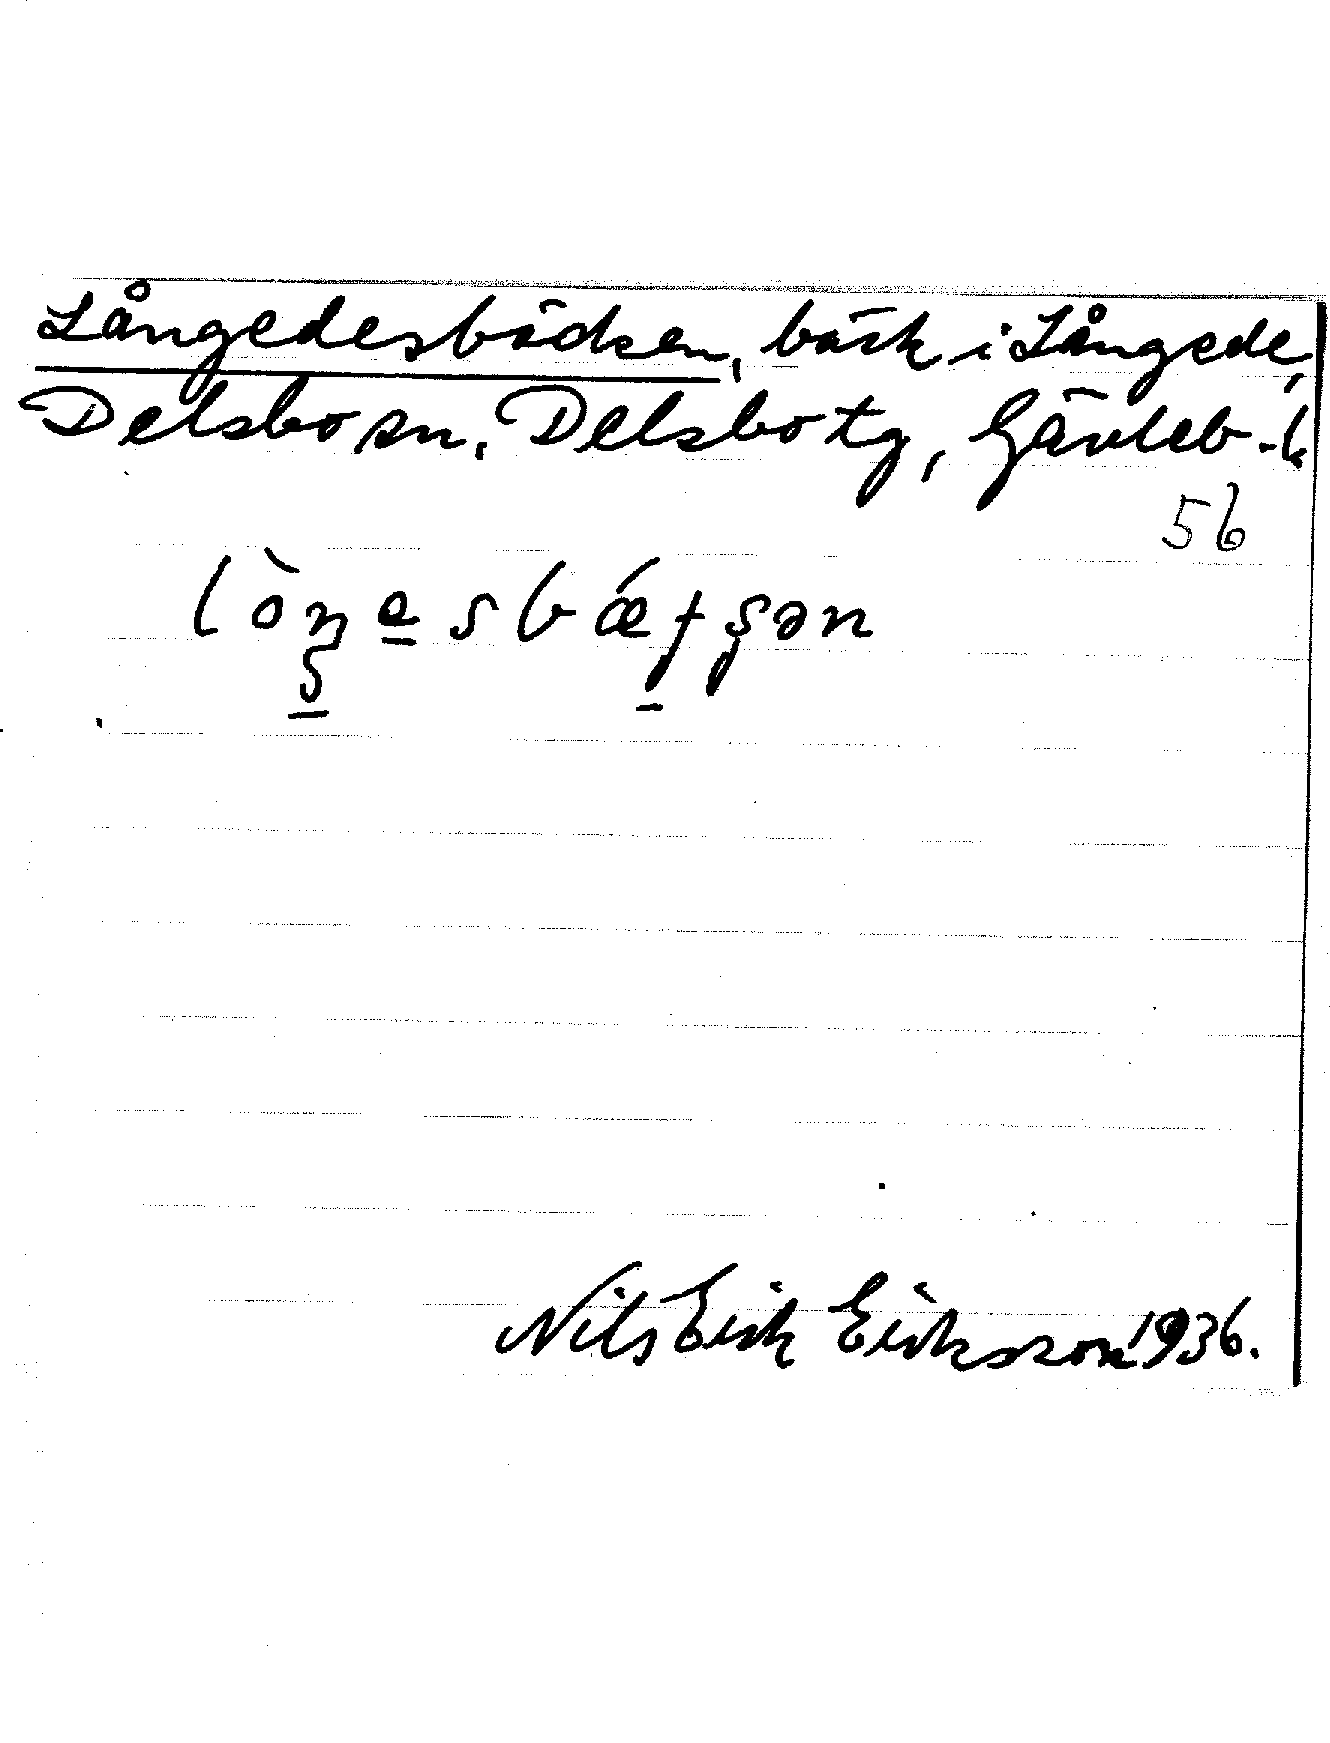 Långedesbäcken, bäck i Långede,
Delsbo sn, Delsbo tg, Gävleb. l.
56
Nils Erik Eriksson 1936.